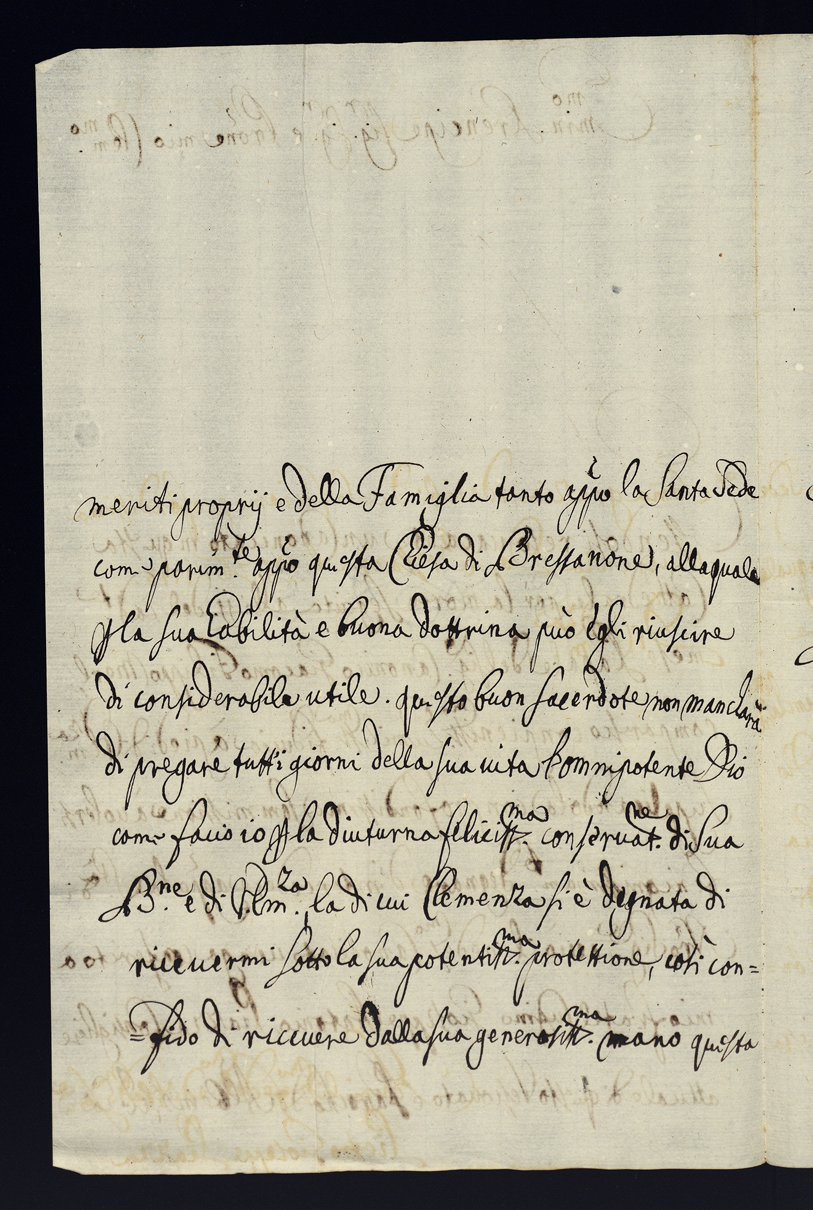 meriti proprij e della Famiglia tanto app̃o la Santa Sede
come parim.te app̃o questa Chiesa di Bressanone, alla quale
ꝑ la sua habilità e buona dottrina può Egli riuscire
di considerabile utile. questo buon sacerdote non mancharà
di pregare tutti giorni della sua vita l'omnipotente Dio
come facio io ꝑ la diuturna feliciss.ma conservat.ne di Sua
B.ne e di V. Em.za, la di cui Clemenza si è degnata di
riceuermi sotto la sua potentiss.ma protettione, così con=
=fido di riceuere dalla sua generosiss.ma mano questa